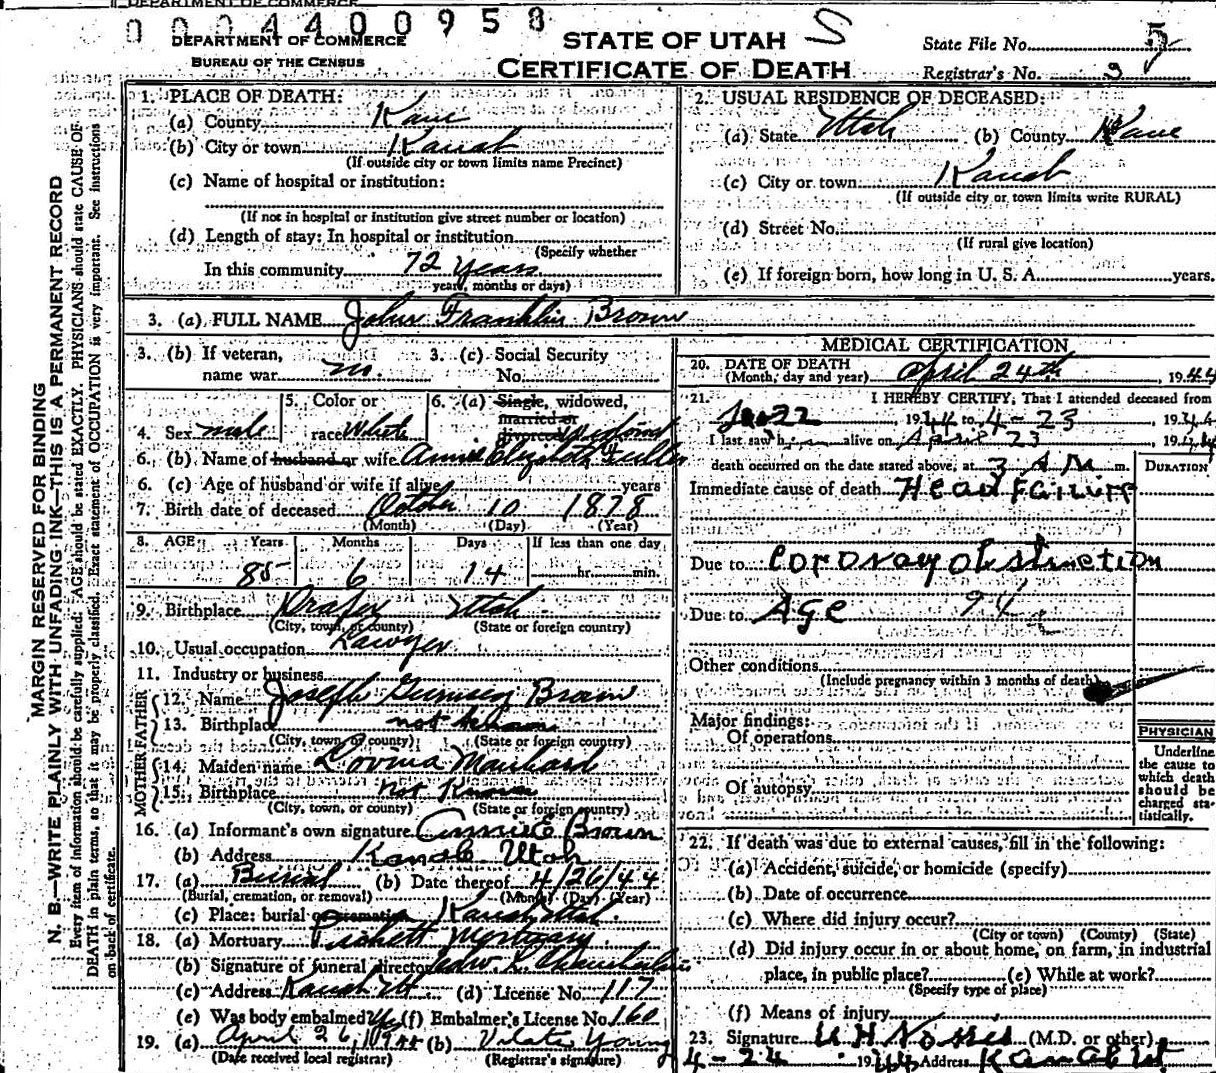 DEPARTMENT OF COMMERCE
0004400958
DEPARTMENT OF COMMERCE
BUREAU OF THE CENSUS
STATE OF UTAH
CERTIFICATE OF DEATH
State File No. 5
Registrar's No. 3
MARGIN RESERVED FOR BINDING
N. B—WRITE PLAINLY WITH UNFADING INK—THIS IS A PERMANENT RECORD
Every item of information should be carefully supplied. AGE should be stated EXACTLY. PHYSICIANS should state CAUSE OF
DEATH in plain terms, so that it may be properly classified. Exact statement of OCCUPATION is very important. See instructions
on back of certificate.
1. PLACE OF DEATH:
(a) County Kane
(b) City or town Kanab
(If outside city or town limits name Precinct)
(c) Name of hospital or institution:
(If not in hospital or institution give street number or location)
(d) Length of stay: In hospital or institution
(Specify whether
In this community 72 years
years, months or days)
2. USUAL RESIDENCE OF DECEASED:
(a) State Utah (b) County Kane
(c) City or town Kanab
(If outside city or town limits write RURAL)
(d) Street No.
(If rural give location)
(e) If foreign born, how long in U. S. A. years.
3. (a) FULL NAME John Franklin Brown
3. (b) If veteran, 3. (c) Social Security
name war no. No.
4. Sex male 5. Color or race White 6. (a) Single, widowed, married or divorced widowed
6. (b) Name of husband or wife Annie Elizabeth Fuller
6. (c) Age of husband or wife if alive years
7. Birth date of deceased October 10 1878
(Month) (Day) (Year)
8. AGE: Years Months Days If less than one day
85 6 14 hr. min.
9. Birthplace Draper Utah
(City, town, or county) (State or foreign country)
10. Usual occupation Lawyer
11. Industry or business
FATHER
12. Name Joseph Brown
13. Birthplace not known
(City, town, or county) (State or foreign country)
MOTHER
14. Maiden name Lovina
15. Birthplace not known
(City, town, or county) (State or foreign country)
16. (a) Informant's own signature Annie E Brown
(b) Address Kanab Utah
17. (a) Burial (b) Date thereof 4/26/44
(Burial, cremation, or removal) (Month) (Day) (Year)
(c) Place: burial or cremation Kanab Utah
18. (a) Mortuary Mortuary
(b) Signature of funeral director L. Chamberlain
(c) Address Kanab Ut. (d) License No. 117
(e) Was body embalmed Yes (f) Embalmer's License No. 160
19. (a) April 26, 1944 (b) Young
(Date received local registrar) (Registrar's signature)
MEDICAL CERTIFICATION
20. DATE OF DEATH
(Month, day and year) April 24th, 1944
21. I HEREBY CERTIFY, That I attended deceased from
1944 to 4-23, 1944
I last saw him alive on April 23 1944
death occurred on the date stated above, at 3 A M m.
DURATION
Immediate cause of death Heart Failure
Due to Coronary obstruction
Due to Age 94
Other conditions
(Include pregnancy within 3 months of death)
Major findings:
Of operations
Of autopsy
PHYSICIAN
Underline
the cause to
which death
should be
charged sta-
tistically.
22. If death was due to external causes, fill in the following:
(a) Accident, suicide, or homicide (specify)
(b) Date of occurrence
(c) Where did injury occur?
(City or town) (County) (State)
(d) Did injury occur in or about home, on farm, in industrial
place, in public place? (e) While at work?
(Specify type of place)
(f) Means of injury
23. Signature (M.D. or other)
4-24 1944 Address Kanab Ut